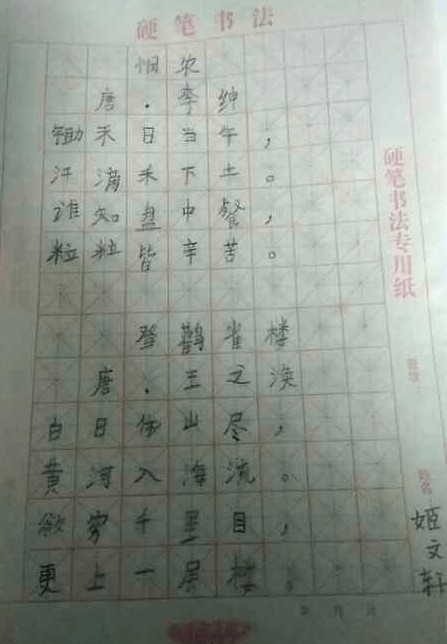 硬笔书法
悯农
唐·李绅
锄禾日当午，
汗滴禾下土。
谁知盘中餐，
粒粒皆辛苦。
登鹳雀楼
唐·王之涣
白日依山尽，
黄河入海流。
欲穷千里目，
更上一层楼。
硬笔书法专用纸
姓名：姬文轩
年 月 日